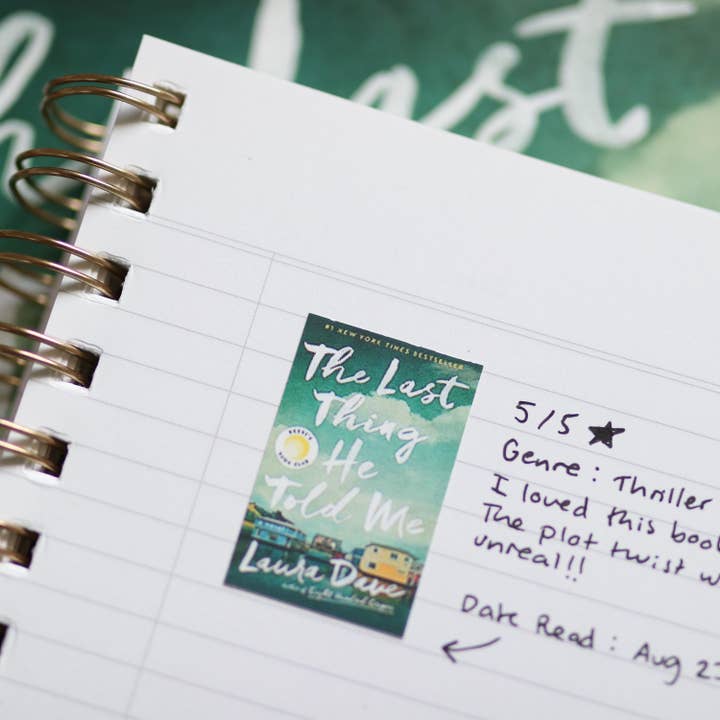 Last
#1 NEW YORK TIMES BESTSELLER
The Last
Thing
He
Told Me
Laura Dave
5/5 ★
Genre : Thriller
I loved this book
The plot twist w
unreal!!
Date Read : Aug 23